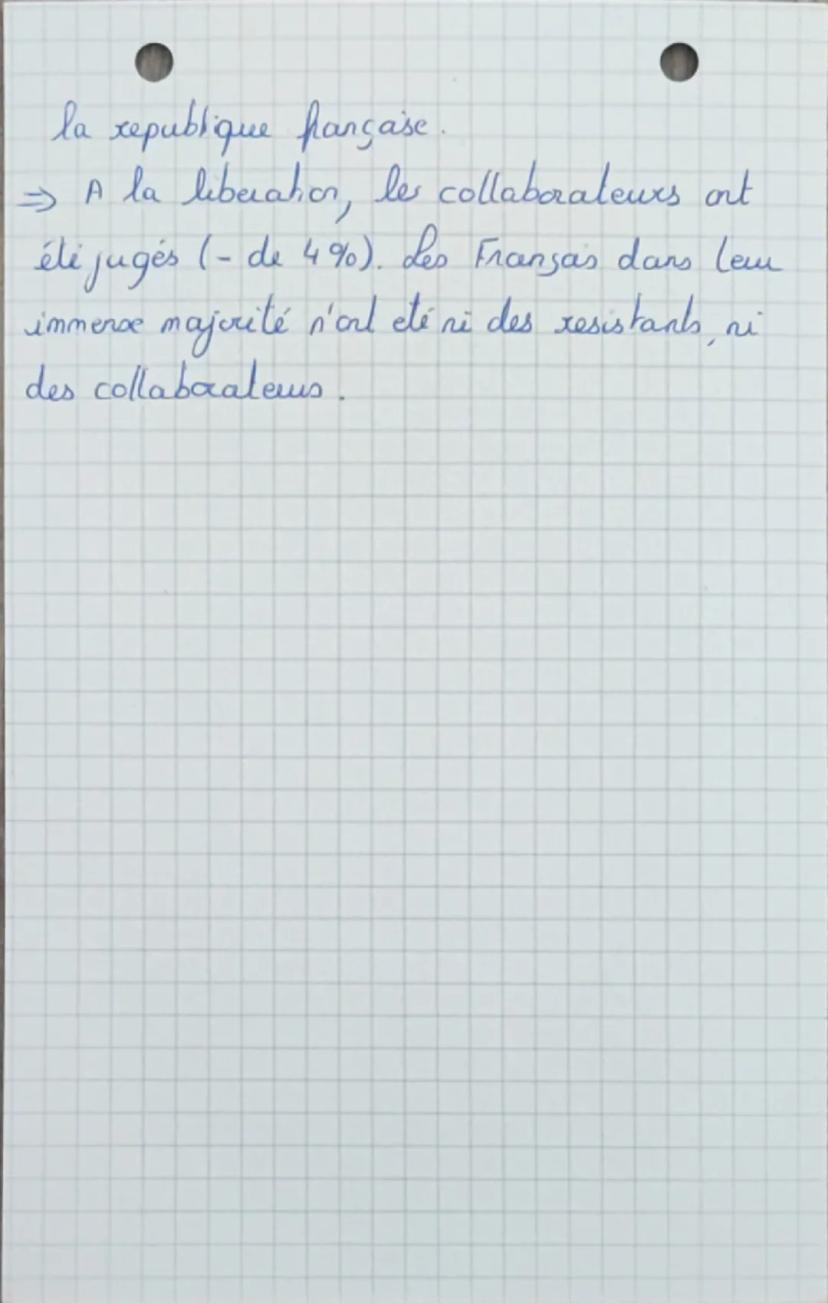 la republique française.
⇒ A la liberation, les collaborateurs ont
été jugés (- de 4%). Les Français dans leur
immense majorité n'ont eté ni des resistants, ni
des collaborateurs.